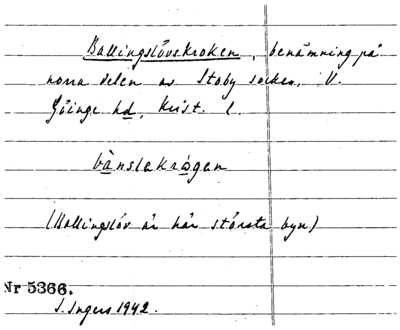 Ballingslövskroken, benämning på
norra delen av Stoby socken, V.
Göinge hd, Krist. l.
bànslakrògan
(Ballingslöv är här största byn)
Nr 5366.
I. Ingers 1942.